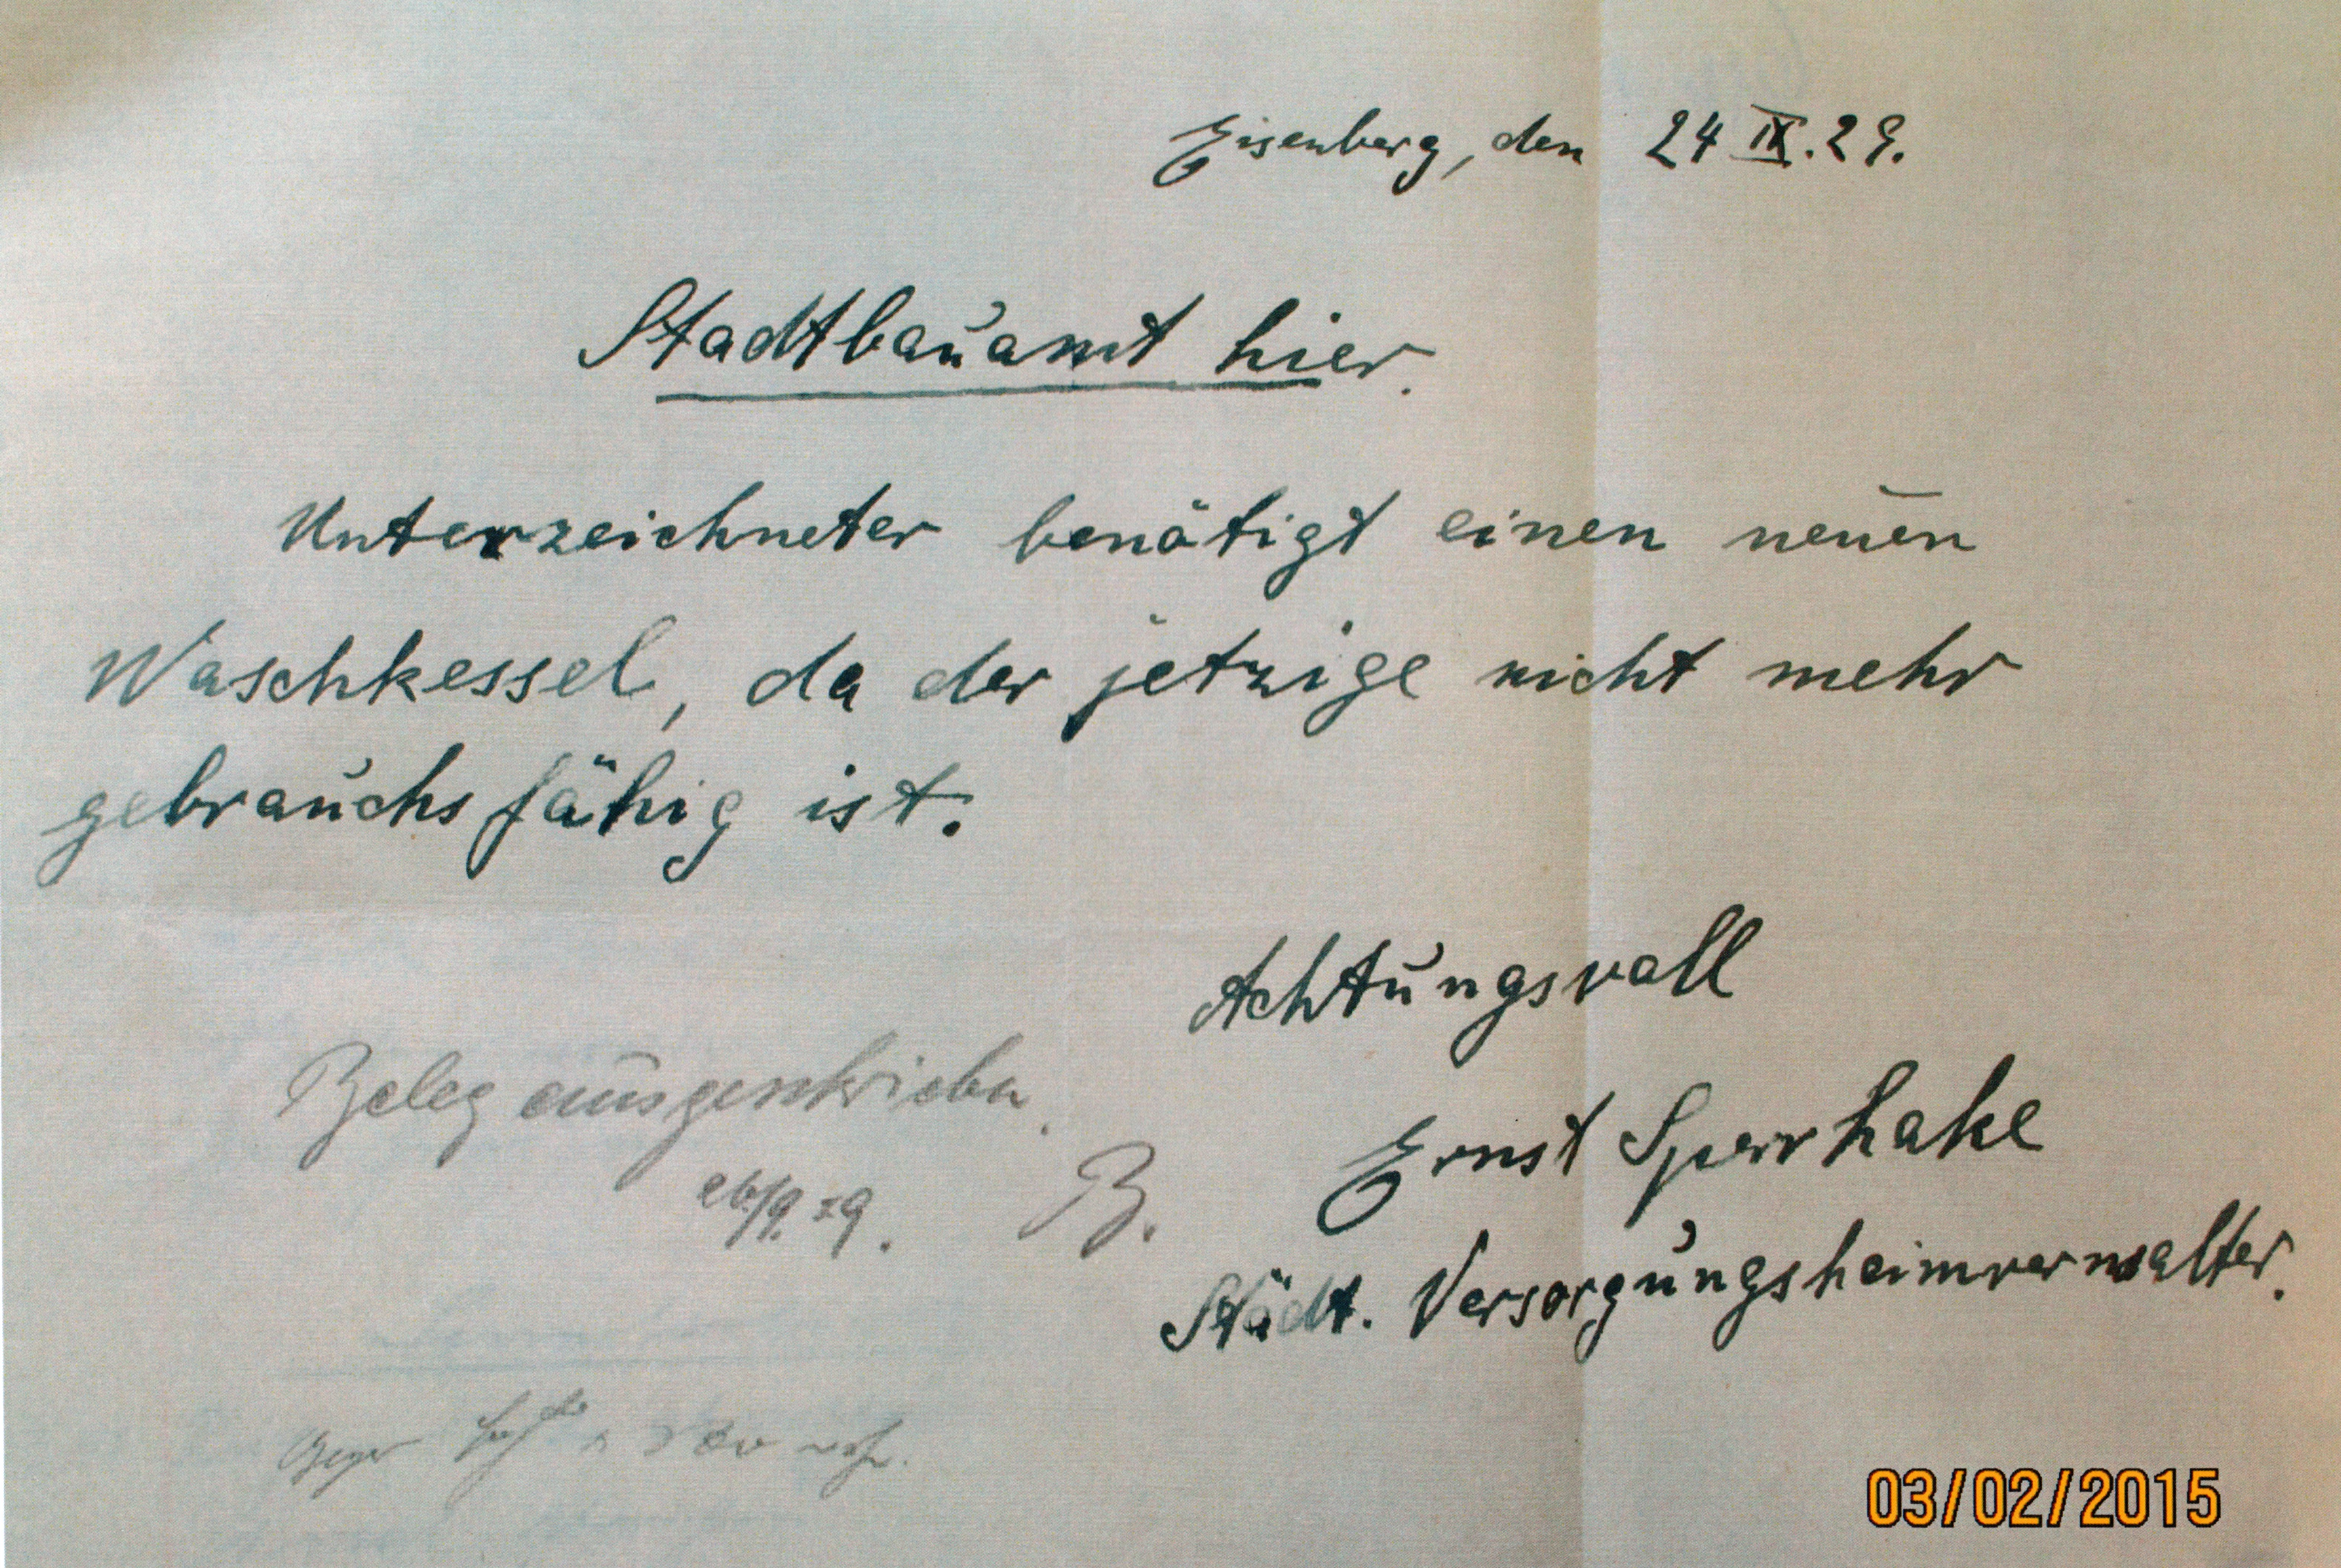 Eisenberg, den 24 IX. 29.
Stadtbauamt hier.
Unterzeichneter benötigt einen neuen
Waschkessel, da der jetzige nicht mehr
gebrauchsfähig ist.
Achtungsvoll
Beleg ausgeschrieben.
Ernst Sperrhake
26/9. 29. B.
Städt. Versorgungsheimverwalter.
03/02/2015